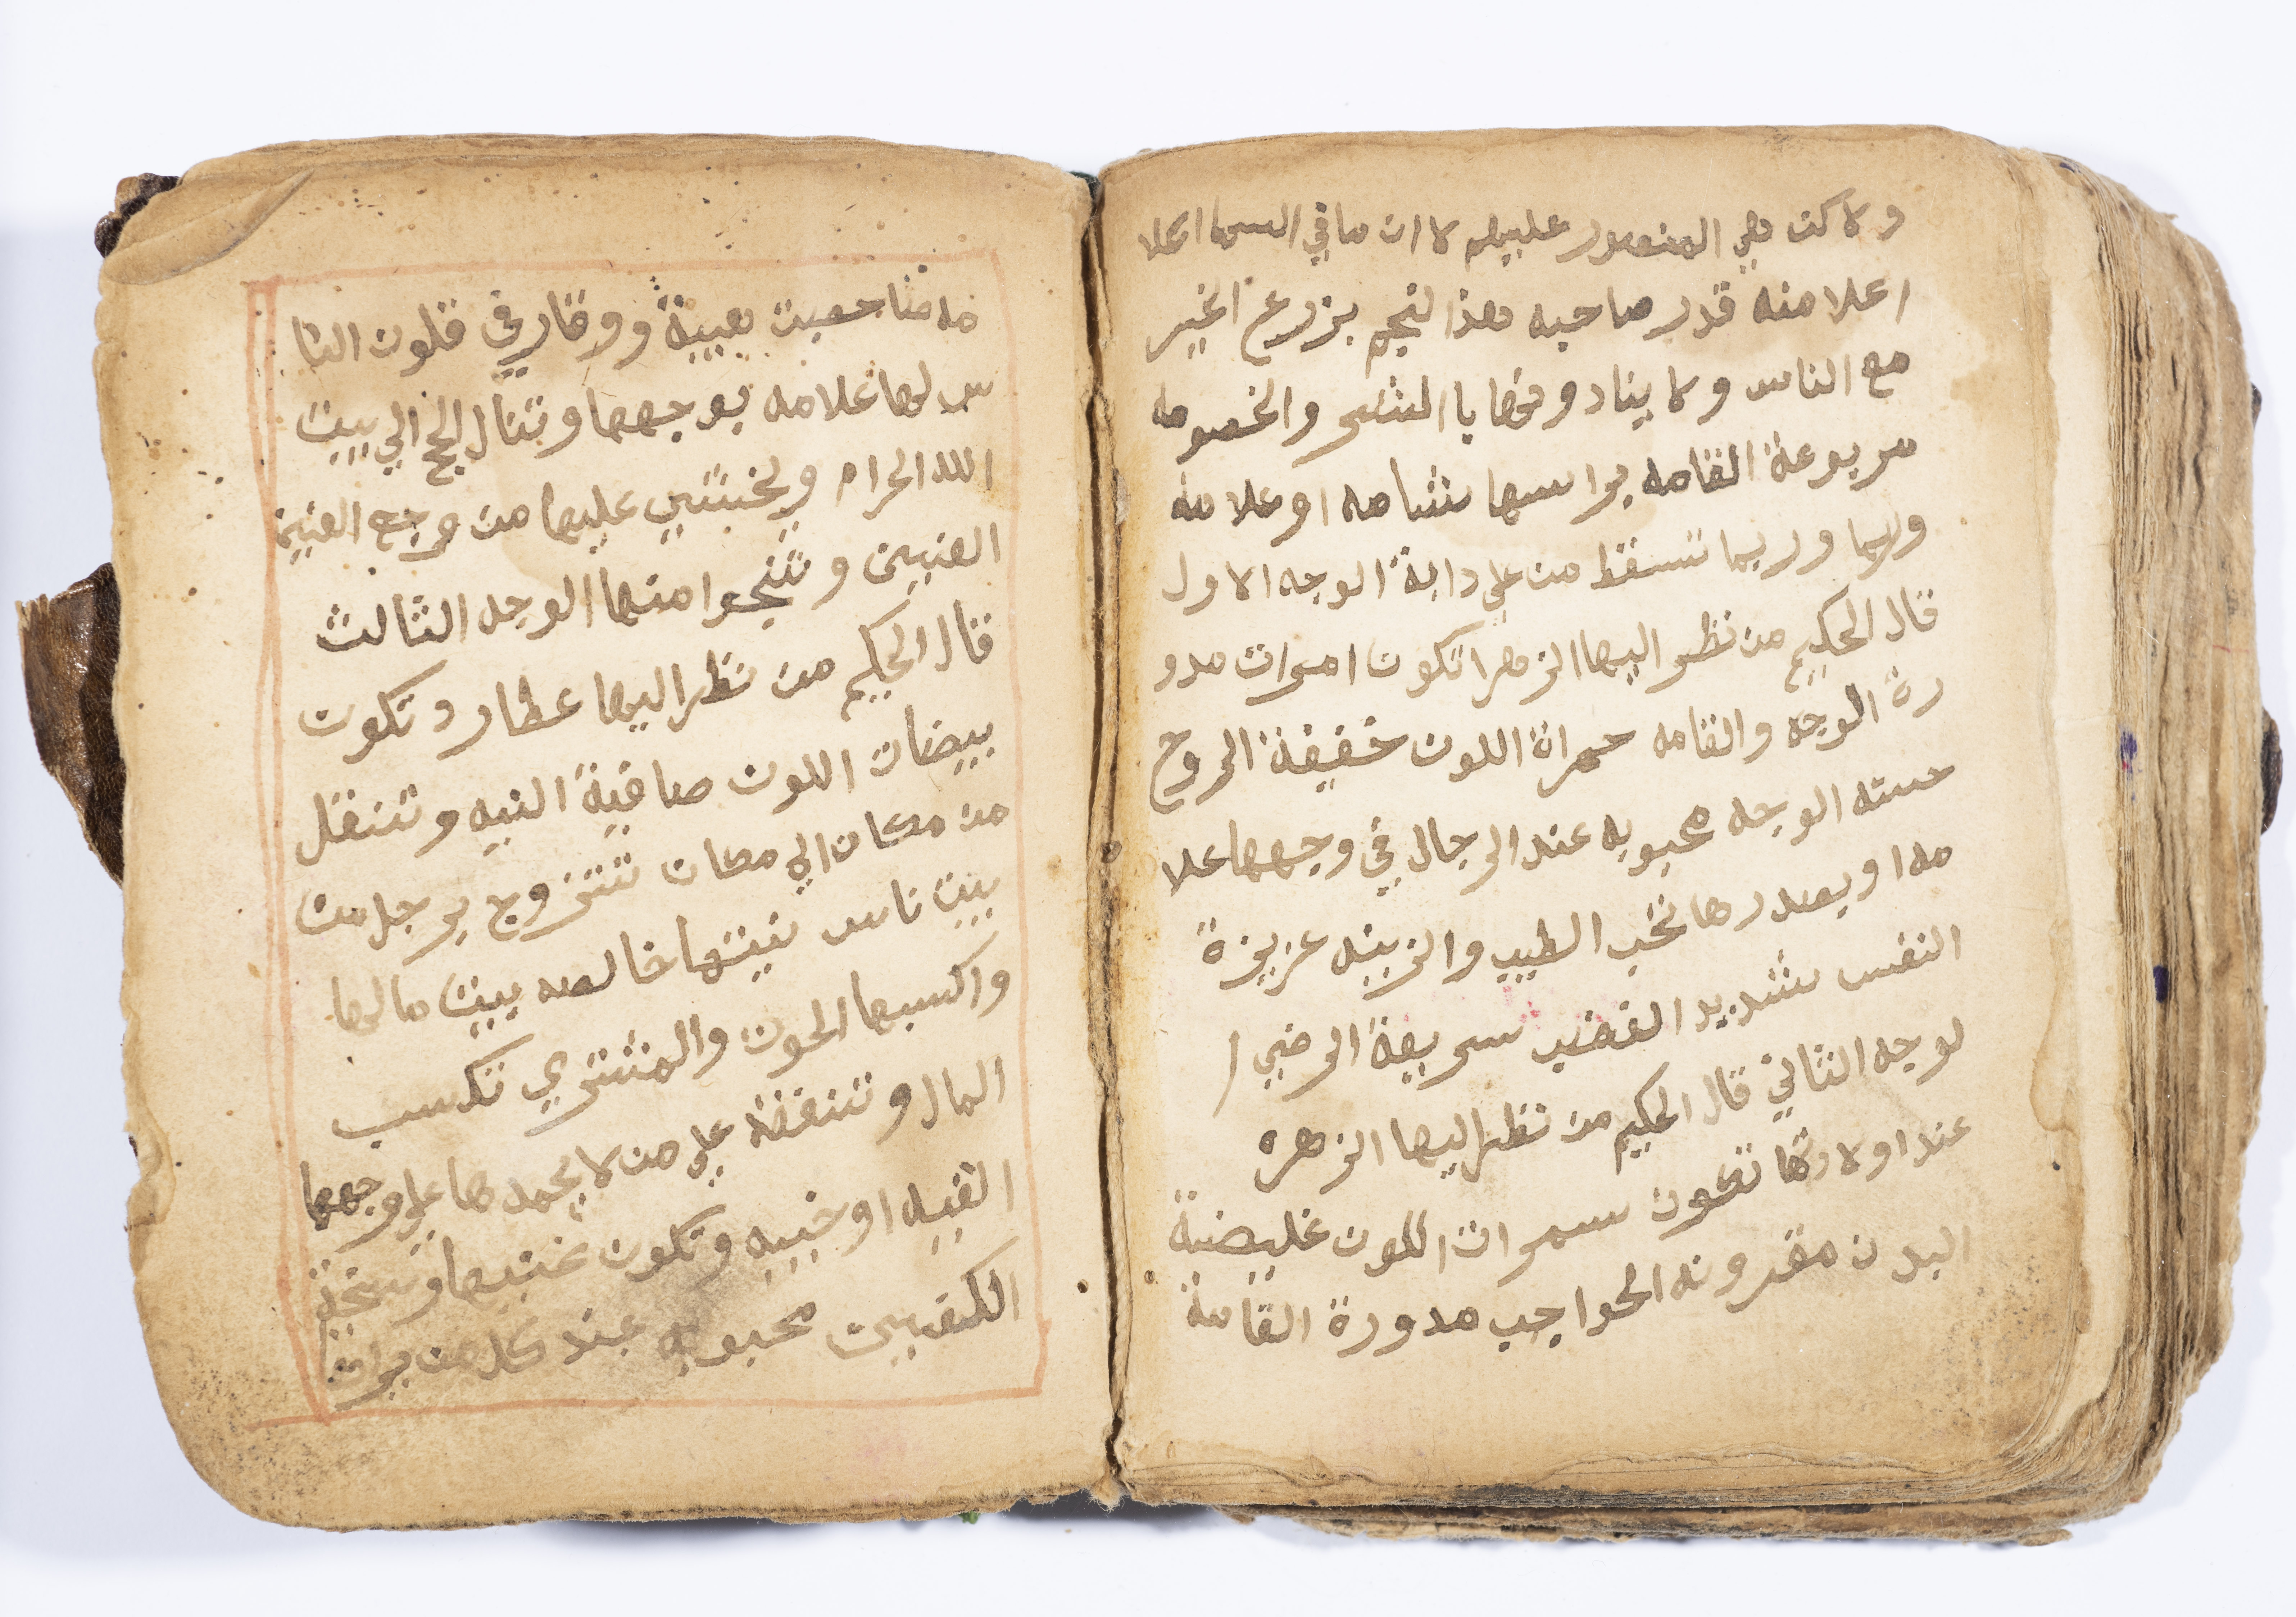 ولاكن هي المنصور عليهم لاان مافي السما اعلا
اعلامنه قدر صاحبه هذالنجم يزرع الخير
مع الناس ولما يناد وفها باالشر والخصومه
مربوعة القامه براسها شامه اوعلامه
وربما تسقط من علي دابة الوجه الاول
قال الحكيم من نظر اليها الزهرا تكون امرات مدو
رة الوجه والقامه حمرات اللون خفيفة الروح
حسنه الوجه محبوبه عند الرجال في وجهها علا
مه او بصدرها تحب الطيب والزينه عزيزة
النفس شديد الغضب سريعة الرضي ا
لوجه الثاني قال الحكيم من نظر اليها الزهره
عند اولادتها تكون سمرات اللون غليضة
البدن مقرونه الحواجب مدورة القامة
مه صاحبت هيبة ووقار في قلون النا
س لها علامه بوجهها وتنال الحج الي بيت
الله الحرام ويخشي عليها من وجع العنين
العنين وتنجوا منها الوجه الثالث
قال الحكيم من نظر اليها عطارد تكون
بيضات اللون صافية النيه وتنتقل
من مكان الي مكان تتزوج برجل من
بيت ناس نيتها خالصه بيت مالها
واكسبها الحوت والمشتري تكسب
المال وتنفقه علي من لا يحمدها علي وجهها
القبيه او خيبه وتكون عنيها وسخة
الكفين محبوبه عند كل من يراه